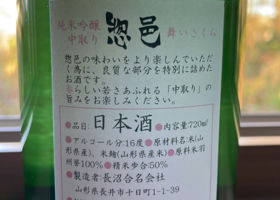 純米吟醸
中取り
惣邑
舞いざくら
惣邑の味わいをより楽しんでいただ
く為に、良質な部分を特別に詰めた
お酒です。
春らしい若さあふれる「中取り」の
旨みをお楽しみください。
●品目:日本酒●内容量720ml
●アルコール分:16度●原材料名:米(山
形県産)、米麹(山形県産米)●原料米羽
州誉100%●精米歩合50%
●製造者:長沼合名会社
山形県長井市十日町1-1-39